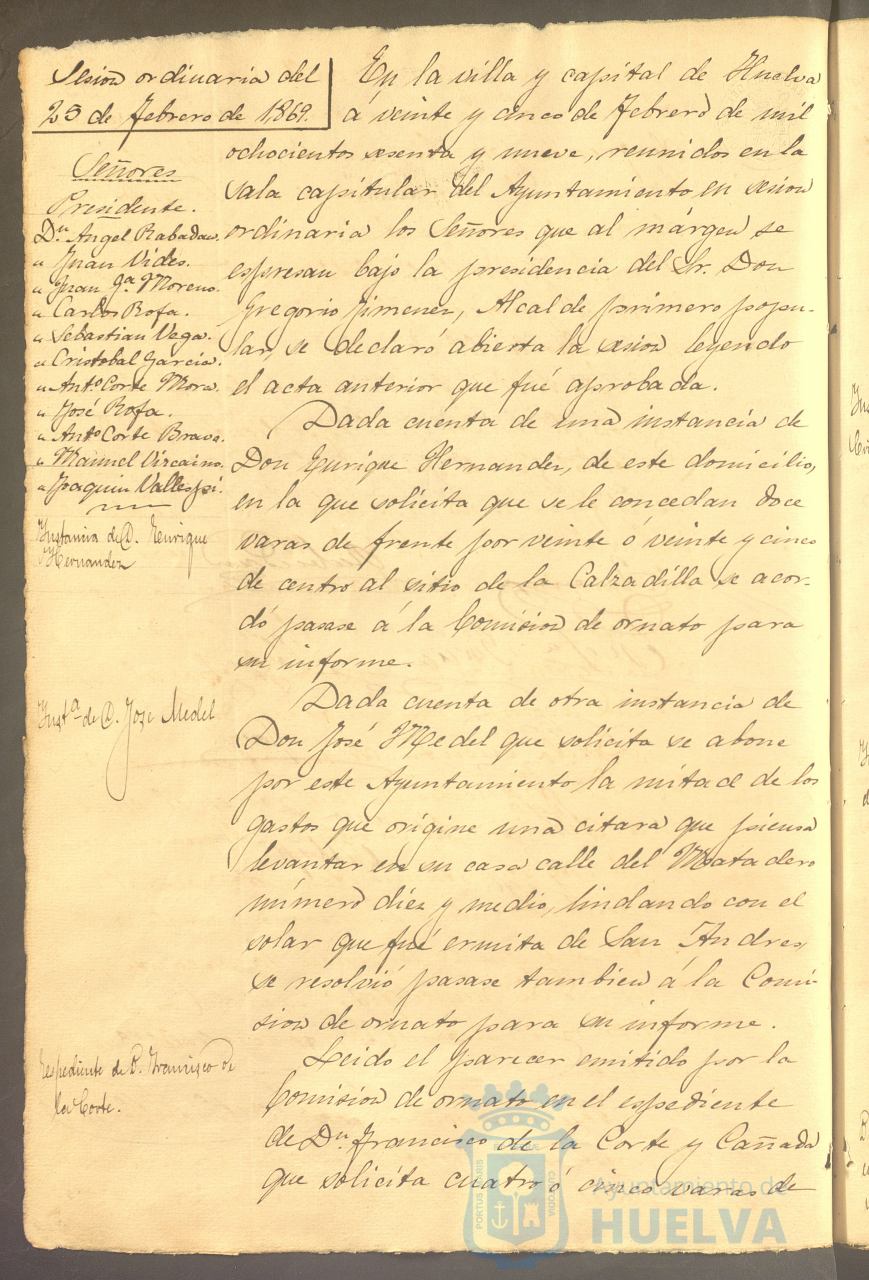 Sesion ordinaria del
25 de Febrero de 1869.
Señores
Presidente.
Dn. Angel Rabadan.
" Juan Vides.
" Juan Ja. Moreno.
" Carlos Rofa.
" Sebastian Vega.
" Cristobal Garcia.
" Anto. Corte Mora.
" José Rofa.
" Anto. Corte Bravo.
" Manuel Vizcaino.
" Joaquin Vallespi.
Instancia de D. Enrique
Hernandez
Insta. de D. Jose Medel
Espediente de D. Francisco de
la Corte.
En la villa y capital de Huelva
á veinte y cinco de Febrero de mil
ochocientos sesenta y nueve, reunidos en la
sala capitular del Ayuntamiento en sesion
ordinaria los Señores que al márgen se
espresan bajo la presidencia del Sr. Don
Gregorio Jimenez, Alcalde primero popu-
lar, se declaró abierta la sesion leyendo
el acta anterior que fué aprobada.
Dada cuenta de una instancia de
Don Enrique Hernandez, de este domicilio,
en la que solicita que se le concedan doce
varas de frente por veinte ó veinte y cinco
de centro al sitio de la Calzadilla se acor-
dó pasase á la Comision de ornato para
su informe.
Dada cuenta de otra instancia de
Don José Medel que solicita se abone
por este Ayuntamiento la mitad de los
gastos que origine una citara que piensa
levantar en su casa calle del Matadero
número diez y medio, lindando con el
solar que fué ermita de San Andres,
se resolvió pasase tambien á la Comi-
sion de ornato para su informe.
Leido el parecer emitido por la
Comision de ornato en el espediente
de Dn. Francisco de la Corte y Cañada
que solicita cuatro ó cinco varas de
PORTUS MARIS
CUSTODIA
Ayuntamiento de
HUELVA